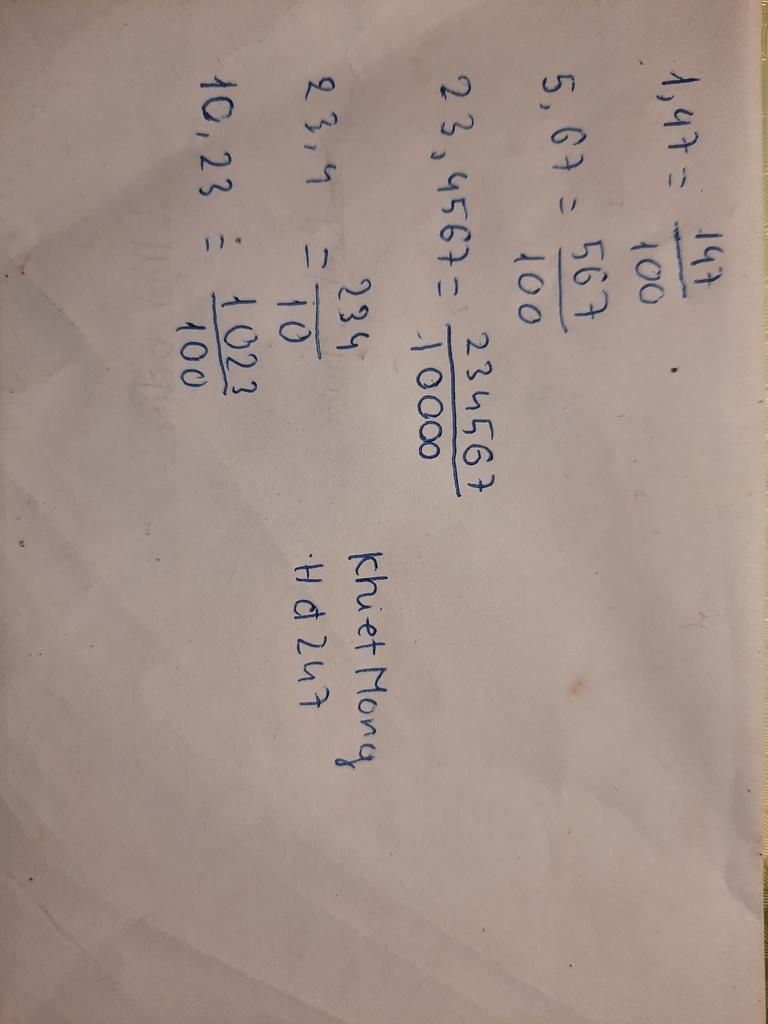 1,47 = 147/100
5,67 = 567/100
23,4567 = 234567/10000
23,4 = 234/10
10,23 = 1023/100
Khiet Mong
Hd 247